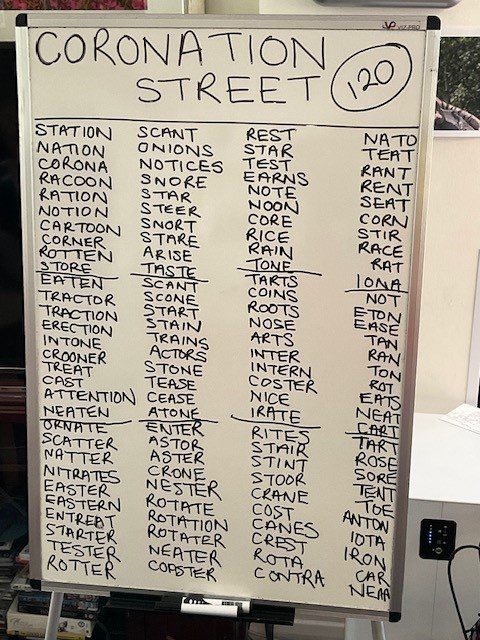 VIZ-PRO
CORONATION
STREET
120
STATION
NATION
CORONA
RACOON
RATION
NOTION
CARTOON
CORNER
ROTTEN
STORE
EATEN
TRACTOR
TRACTION
ERECTION
INTONE
CROONER
TREAT
CAST
ATTENTION
NEATEN
ORNATE
SCATTER
NATTER
NITRATES
EASTER
EASTERN
ENTREAT
STARTER
TESTER
ROTTER
SCANT
ONIONS
NOTICES
SNORE
STAR
STEER
SNORT
STARE
ARISE
TASTE
SCANT
SCONE
START
STAIN
TRAINS
ACTORS
STONE
TEASE
CEASE
ATONE
ENTER
ASTOR
ASTER
CRONE
NESTER
ROTATE
ROTATION
ROTATER
NEATER
COASTER
REST
STAR
TEST
EARNS
NOTE
NOON
CORE
RICE
RAIN
TONE
TARTS
COINS
ROOTS
NOSE
ARTS
INTER
INTERN
COSTER
NICE
IRATE
RITES
STAIR
STINT
STOOR
CRANE
COST
CANES
CREST
ROTA
CONTRA
NATO
TEAT
RANT
RENT
SEAT
CORN
STIR
RACE
RAT
IONA
NOT
ETON
EASE
TAN
RAN
TON
ROT
EATS
NEAT
CART
TART
ROSE
SORE
TENT
TOE
ANTON
IOTA
IRON
CAR
NEAR